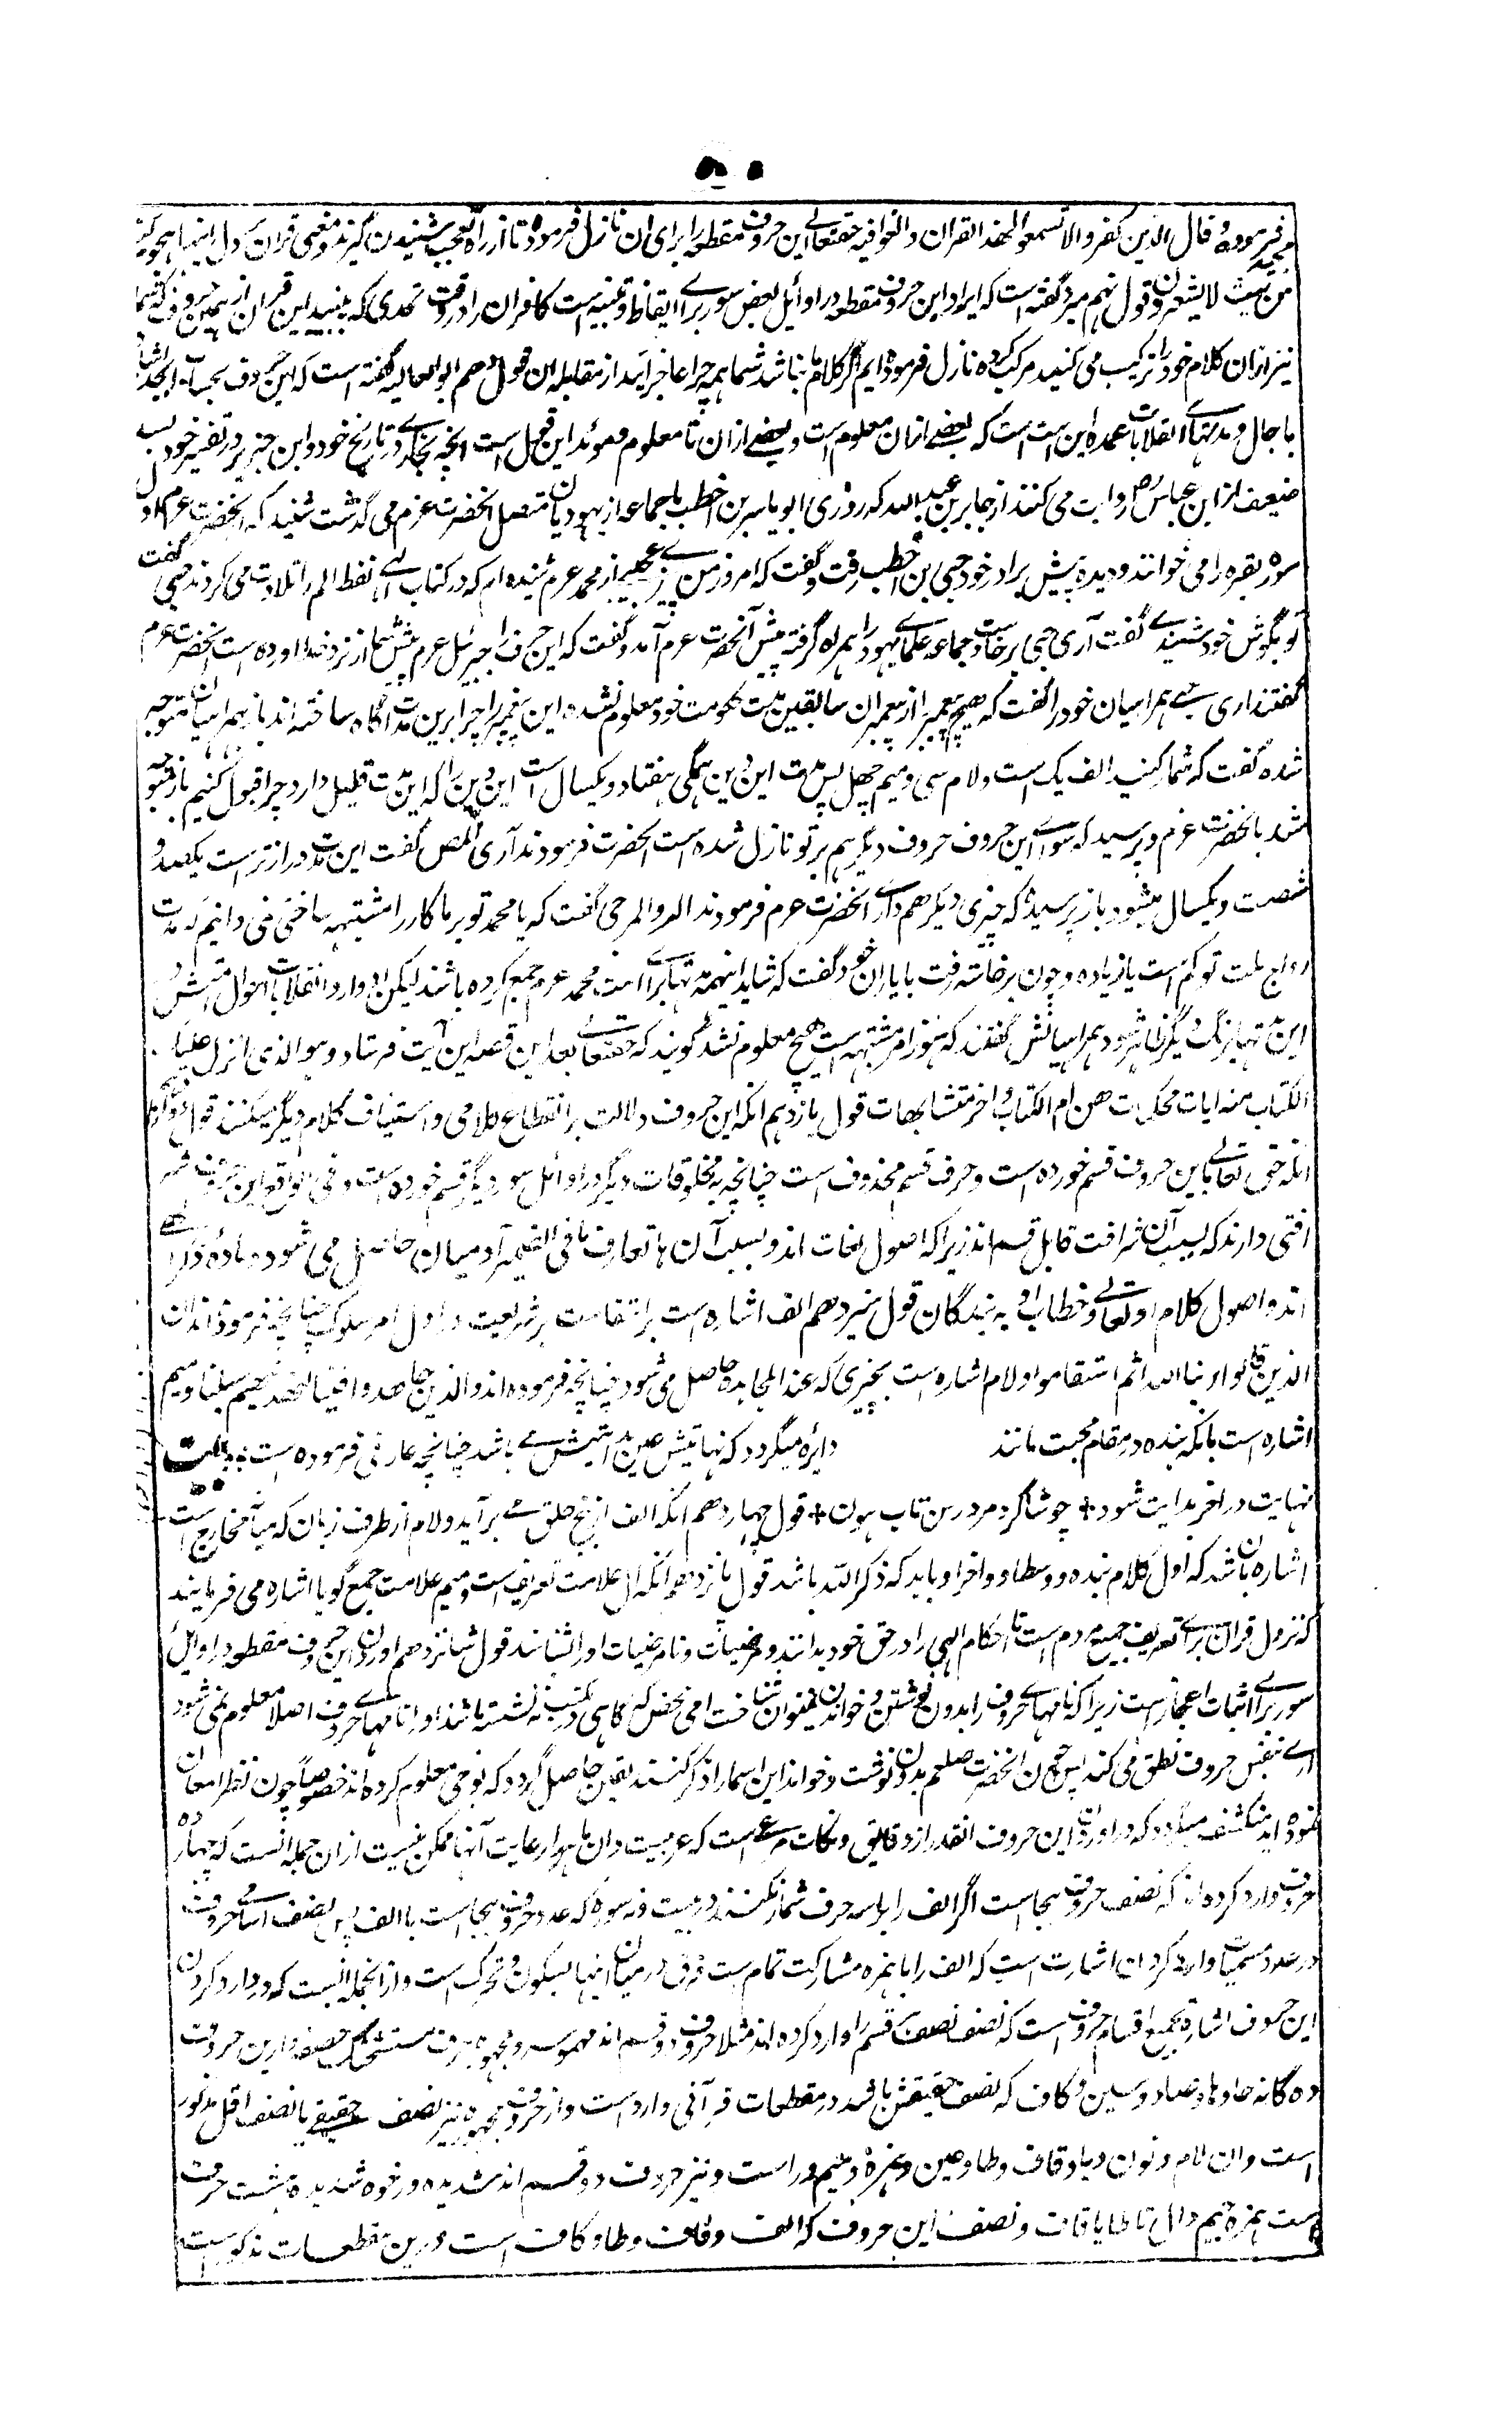 ۵۰
فرموده قال الذین کفروا لا تسمعوا لهذا القران والغوا فیه حقتعالے این حروف مقطعه را برای ان نازل فرمود تا از راه تعجب بشنیدن گیرند و معنی قران در دل اینها
من حیث لا یشعرون و قول نهم مبرد گفته است که ایراد این حروف مقطعه در اوائل بعض سور براے ایقاظ و تنبیه است کافران را در وقت تحدی که ببینید این قران از همین حروف که شما
نیز ازان کلام خود را ترکیب می کنید مرکب کرده نازل فرموده ایم اگر کلام ما نباشد شما همه چرا عاجز آیید از مقابله ان قول دهم ابو العالیه گفته است که این حروف بحساب ابجد اشاره
با جال و مدتهاے انقلابات عمده این است است که بعضے ازان معلوم است و بعضے از ان نا معلوم و موئد این قول است انچه بخاری در تاریخ خود و ابن جریر در تفسیر خود بسند
ضعیف از ابن عباس رض روایت می کنند از جابر بن عبد الله که روزی ابو یاسر بن اخطب با جماعه از یهودیان متصل انحضرت عم می گذشت شنید که انحضرت عم اول
سوره بقره را می خوانند و دیده پیش برادر خود حیی ابن اخطب رفت و گفت که امروز من چیزے عجیب از محمد عم شنیده ام که در کتاب الهے لفظ الم را تلاوت می کردند حیی گفت
تو بگوش خود شنیدے گفت آری حیی برخاست و جماعه علماے یهود را همراه گرفته پیش آنحضرت عم آمد و گفت که این حرف را جبرئیل عم پیش شما از نزد خدا اورده است انحضرت عم
گفتند اری حیے همراهیان خود را گفت که هیچ پیغمبر از پیغمبران سابقین مدت حکومت خود معلوم نشده این پیغمبر را چرا برین مدت آگاه ساخته اند باز همراهیان متوجه
شده گفت که شما کنید الف یک است و لام سی و میم چهل پس مدت این دین همگی هفتاد و یکسال است این دین را که این مدت قلیل دارد چرا قبول کنیم باز متوجه
شد بانحضرت عم و پرسید که سواے این حروف حروف دیگر هم بر تو نازل شده است انحضرت فرمودند آری المص گفت این مدت دراز تر است یکصد و
شصت و یکسال میشود باز پرسید که چیزی دیگر هم داری انحضرت عم فرمودند الر و المر حیی گفت که یا محمد تو بر ما کار را مشتبه ساختی نمی دانیم که مدت
رواج ملت تو کم است یا زیاده و چون برخاسته رفت با یاران خود گفت که شاید اینهمه مدتها براے امت محمد عم جمع کرده باشند لیکن ادوار و انقلابات احوال امتش در
این مدتها بزنگ دیگر ظاهر شود همراهیانش گفتند که هنوز امر مشتبه است هیچ معلوم نشد گویند که حقتعالے بعد این قصه این آیت فرستاد و هو الذی انزل علیک
الکتاب منه ایات محکمات هن ام الکتاب و اخر متشابهات قول یازدهم انکه این حروف دلالت بر انقطاع کلامی و استیناف کلام دیگر میکنند قول دوازدهم
انکه حق تعالے باین حروف قسم خورده است و حرف قسم محذوف است چنانچه به مخلوقات دیگر در اوائل سور دیگر قسم خورده است و فی الواقع این حروف شر
افتی دارند که بسبب آن شرافت قابل قسم اند زیرا که اصول لغات اند و بسبب آن ها تعارف ما فی الضمیر آدمیان حاصل می شود و ماده ذکر الهے
اند و اصول کلام او تعالے و خطاب او به بندگان قول سیزدهم الف اشاره است بر استقامت بر شریعت در اول امر سلوک چنانچه فرموده اند ان
الذین قالوا ربنا الله ثم استقاموا و لام اشاره است بچیزی که عند المجاهده حاصل می شود چنانچه فرموده اند والذین جاهدوا فینا لنهدینهم سبلنا و میم
اشاره است بانکه بنده در مقام محبت مانند دائره میگردد که نهایتش عین بدایتش مے باشد چنانچه عارفی فرموده است بیت
نهایت در اخر بدایت شود + چو شاگرد مدرس تاب بون + قول چهاردهم انکه الف از بیخ حلق مے برآید و لام از طرف زبان که میانه مخارج است
اشاره بان باشد که اول کلام بنده و وسط او و اخر او باید که ذکر الله باشد قول پانزدهم آنکه ال علامت تعریف است و میم علامت جمع گویا اشاره می فرمایند
که نزول قران براے تعریف جمیع مردم است تا احکام الهی را در حق خود بدانند و مرضیات و نامرضیات او را بشناسند قول شانزدهم اوردن این حروف مقطعه در اوایل
سور براے اثبات اعجاز است زیرا که نامهاے حروف را بدون نوشتن و خواندن نمیتوان شناخت امی محض که گاهی در مکتب نه نشسته باشد او را نامهاے حروف اصلا معلوم نمی شود
ارے بنفس حروف نطق می کند پس چون انحضرت صلعم بدون نوشت و خواند این اسما را ذکر کنند یقین حاصل گردد که بوحی معلوم کرده اند خصوصا چون نظر امعان
نموده اید منکشف میگردد که در اوردن این حروف انقدر از دقایق و نکات مرعے است که عربیت دان ماهر را رعایت آنها ممکن نیست از ان جمله انست که چهارده
حروف وارد کرده اند که نصف حروف هجا است اگر الف را براسه حرف شمار نکنند در بیست و نه سوره که عدد حروف هجا است با الف پس نصف اسامے حروف
در عدد مسمیات وارد کردن اشارت است که الف را با همزه مشارکت تمام است فرق درمیان اینها بسکون و تحرک است و از انجمله انیست که در وارد کردن
این حروف اشاره بجمیع اقسام حروف است که نصف نصف هر قسم را وارد کرده اند مثلا حروف دو قسم اند مهموسه و مجهوره حروف ستشحثک خصفه و ازین حروف
ده گانه حا و ها و صاد و سین و کاف که نصف حقیقیش باشد در مقطعات قرآنی وارد است و از حروف مجهوره نیز نصف حقیقے یا نصف اقل مذکور
است و ان لام و نون و یا و قاف و طا و عین و همزه و میم و را است و نیز حروف دو قسم اند شدیده و رخوه شدیده هشت حرف
است همزه جیم دال تا طا با قاف و نصف این حروف که الف و قاف و طا و کاف است درین مقطعات مذکور است